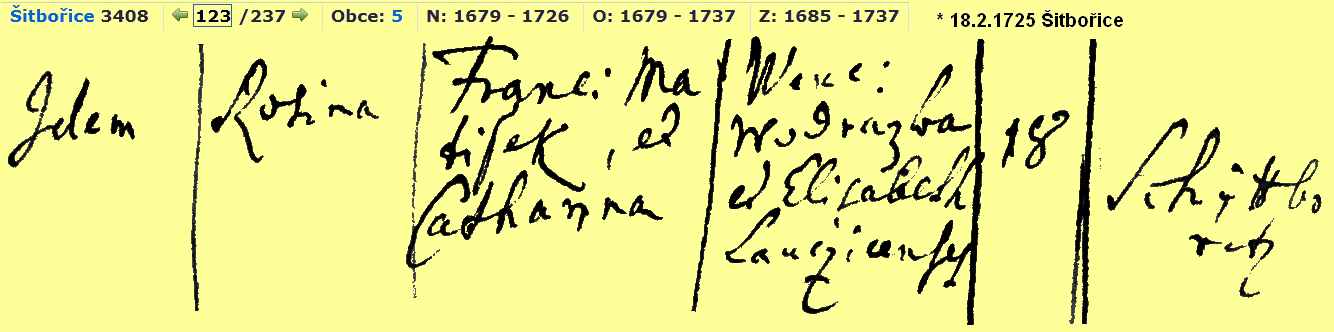 Šitbořice 3408 123 /237 Obce: 5 N: 1679 - 1726 O: 1679 - 1737 Z: 1685 - 1737 * 18.2.1725 Šitbořice
Idem
Rosina
Franci Ma
tisek, et
Catharina
Wenc:
Wodrazka
et Elisabeth
18
Schÿttbo
retz